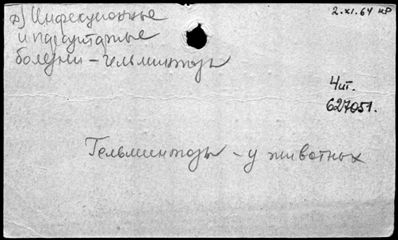 д) Инфекционные
и паразитарные
болезни – гельминтозы
2.XI.64 кр
Чит.
627051.
Гельминтозы – у животных